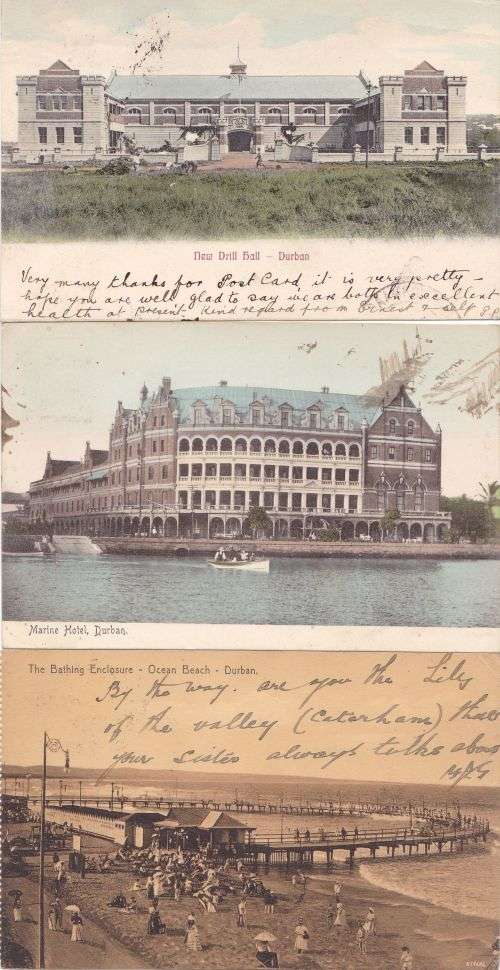 New Drill Hall - Durban
Very many thanks for Post Card, it is very pretty -
hope you are well, glad to say we are both in excellent
health at present. Kind regard from Ernest & self
Marine Hotel, Durban.
The Bathing Enclosure - Ocean Beach - Durban.
By the way. are you the Lily
of the valley (Caterham) that
your sister always talks about